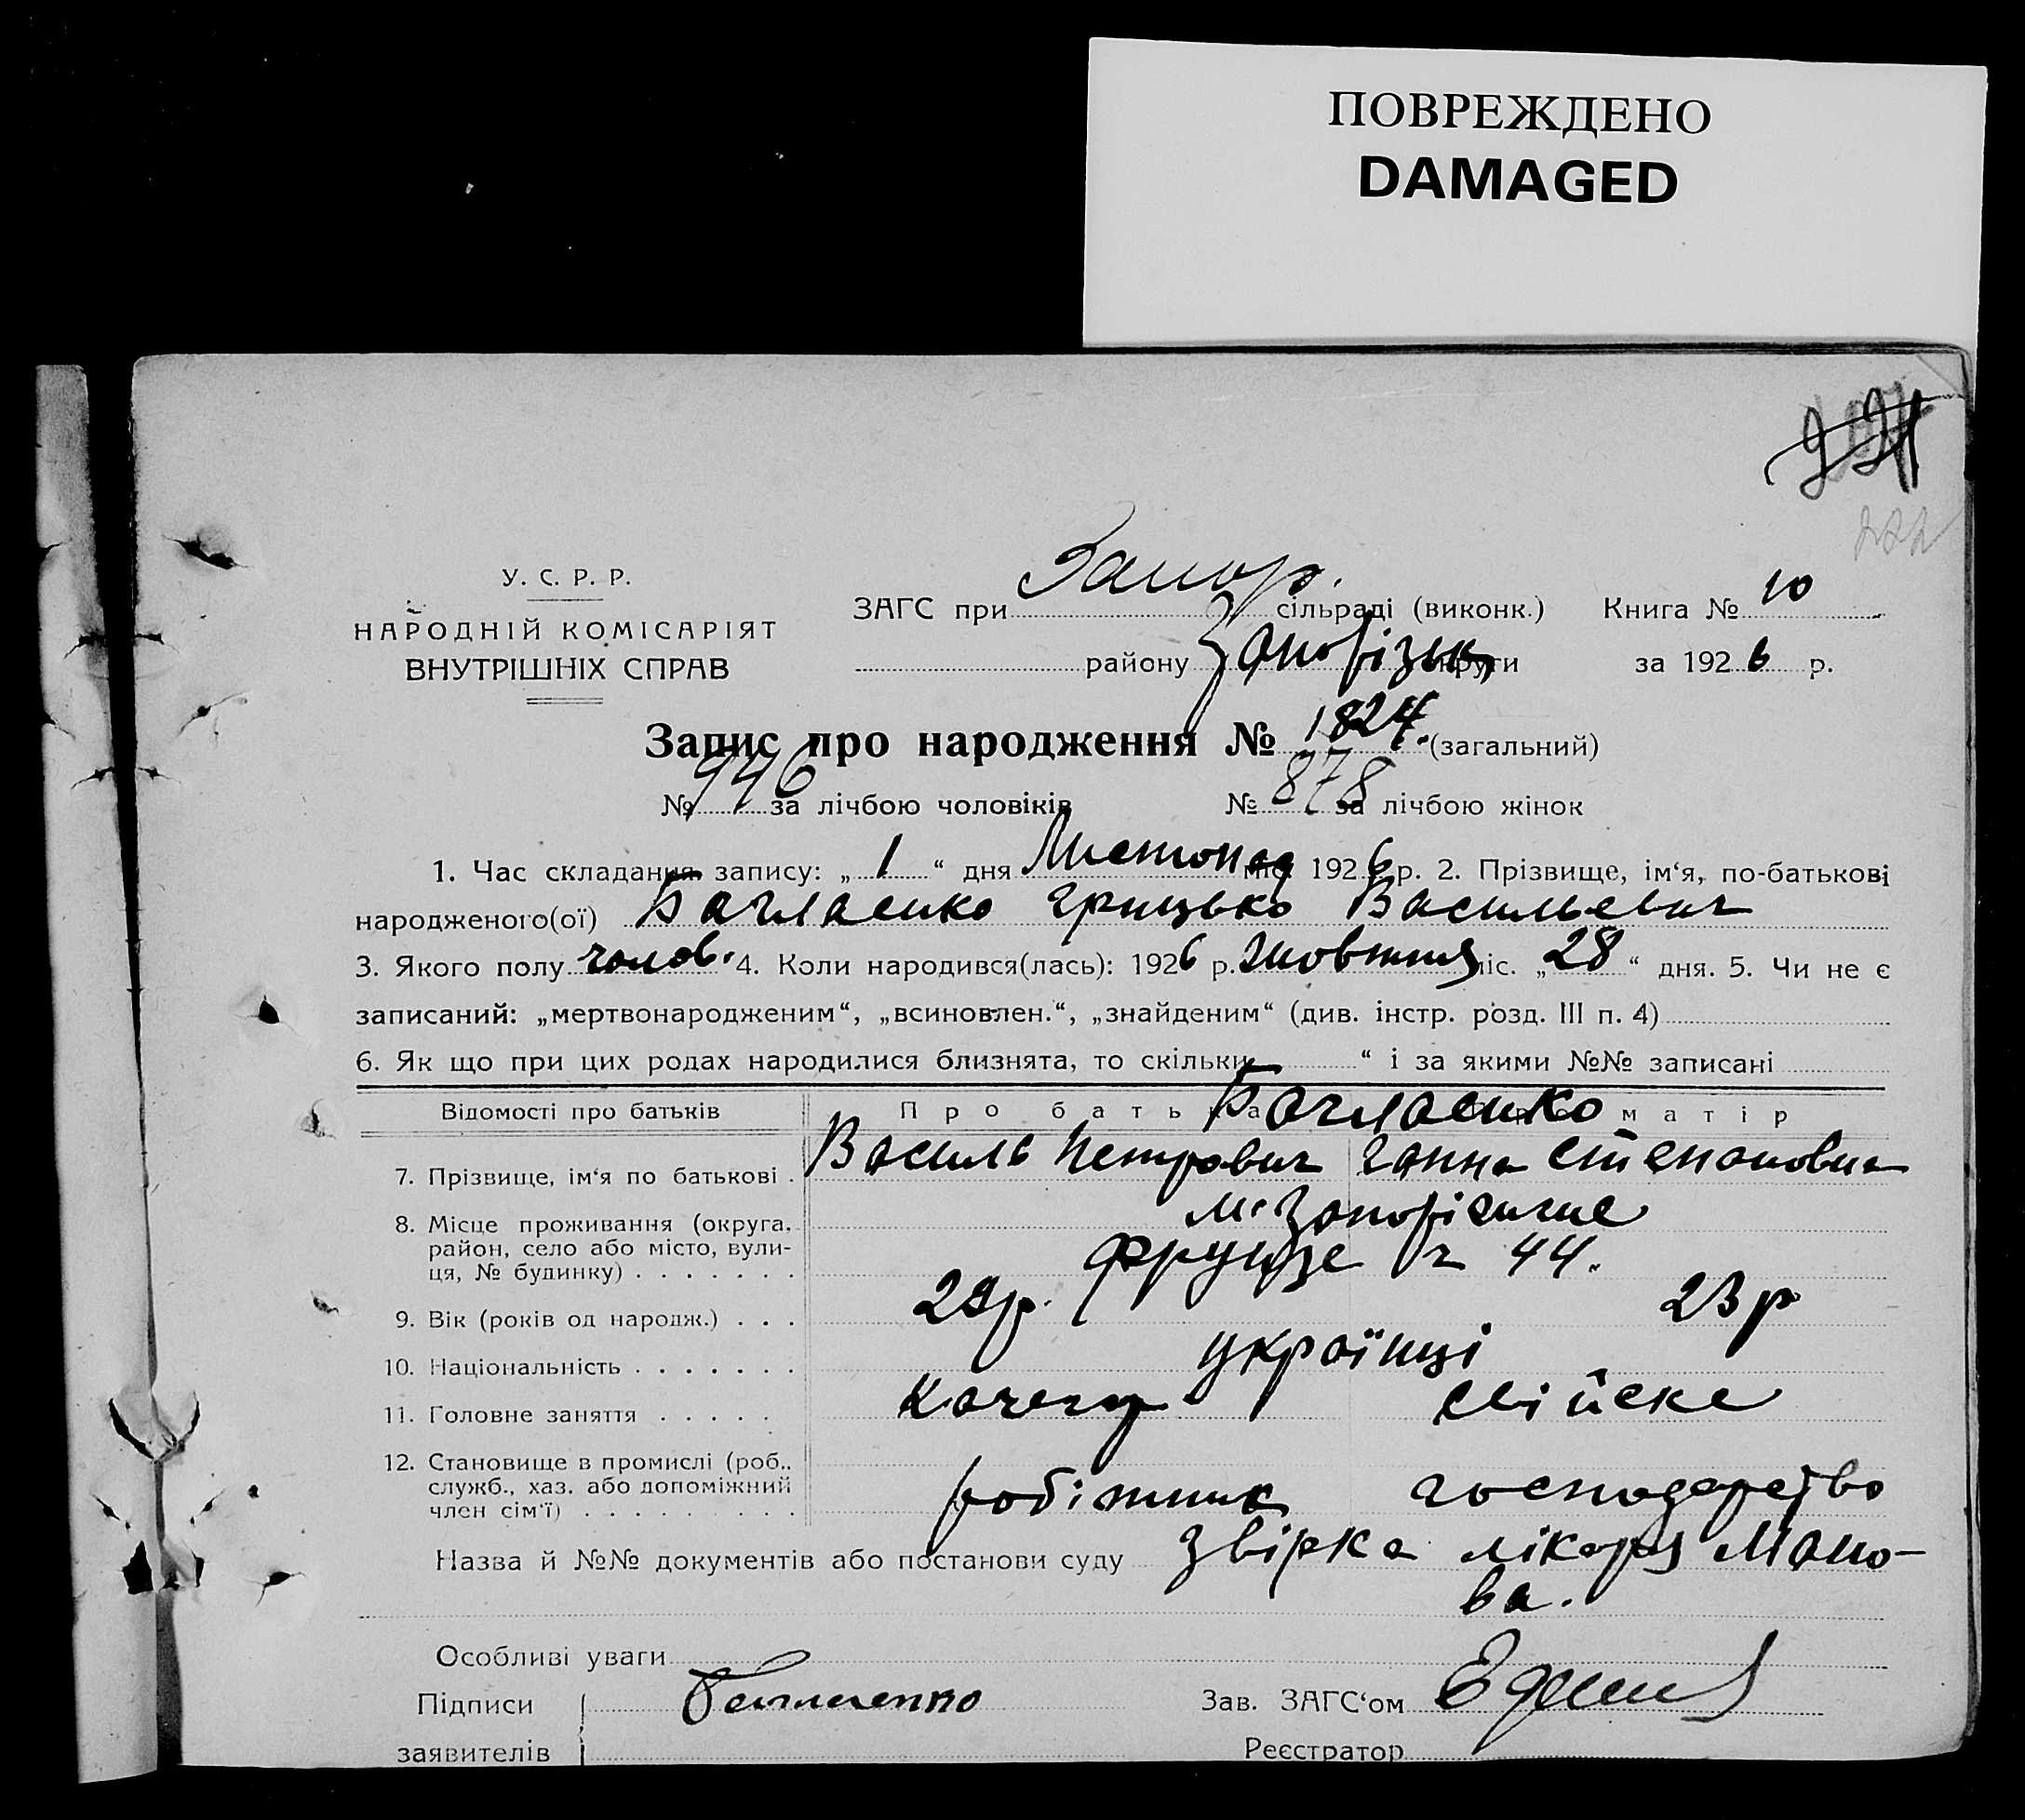 ПОВРЕЖДЕНО
DAMAGED
У. С. Р. Р.
НАРОДНІЙ КОМІСАРІЯТ
ВНУТРІШНІХ СПРАВ
ЗАГС при Запор. сільраді (виконк.) Книга № 10
району Запорізьк округи за 1926 р.
Запис про народження № 1824. (загальний)
№ 946 за лічбою чоловіків № 878 за лічбою жінок
1. Час складання запису: „ 1 “ дня Листопад міс. 1926 р. 2. Прізвище, ім‘я, по-батькові
народженого(ої) Грицько Васильевич
3. Якого полу чолов. 4. Коли народився(лась): 1926 р. жовтня міс. „ 28 “ дня. 5. Чи не є
записаний: „мертвонародженим“, „всиновлен.“, „знайденим“ (див. інстр. розд. III п. 4)
6. Як що при цих родах народилися близнята, то скільки “ і за якими №№ записані
Відомості про батьків Про батька матір
7. Прізвище, ім‘я по батькові . Василь Петрович Ганна Степановна
8. Місце проживання (округа, м. Запоріжжє
район, село або місто, вули-
ця, № будинку) . . . . . . . Фрунзе ч 44.
9. Вік (років од народж.) . . . 29р. 23 р
10. Національність . . . . . . . українці
11. Головне заняття . . . . . кочегар свійске
12. Становище в промислі (роб.,
служб., хаз. або допоміжний
член сім‘ї) . . . . . . . . . робітник господарство
Назва й №№ документів або постанови суду звірка лікаря Мано-
ва.
Особливі уваги
Підписи Зав. ЗАГС‘ом
заявителів Реєстратор